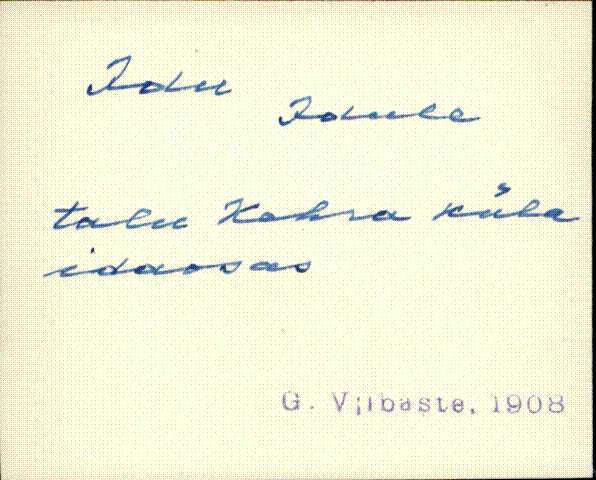 Idu
Idule
talu Kahra küla
idaosas
G. Vilbaste, 1908